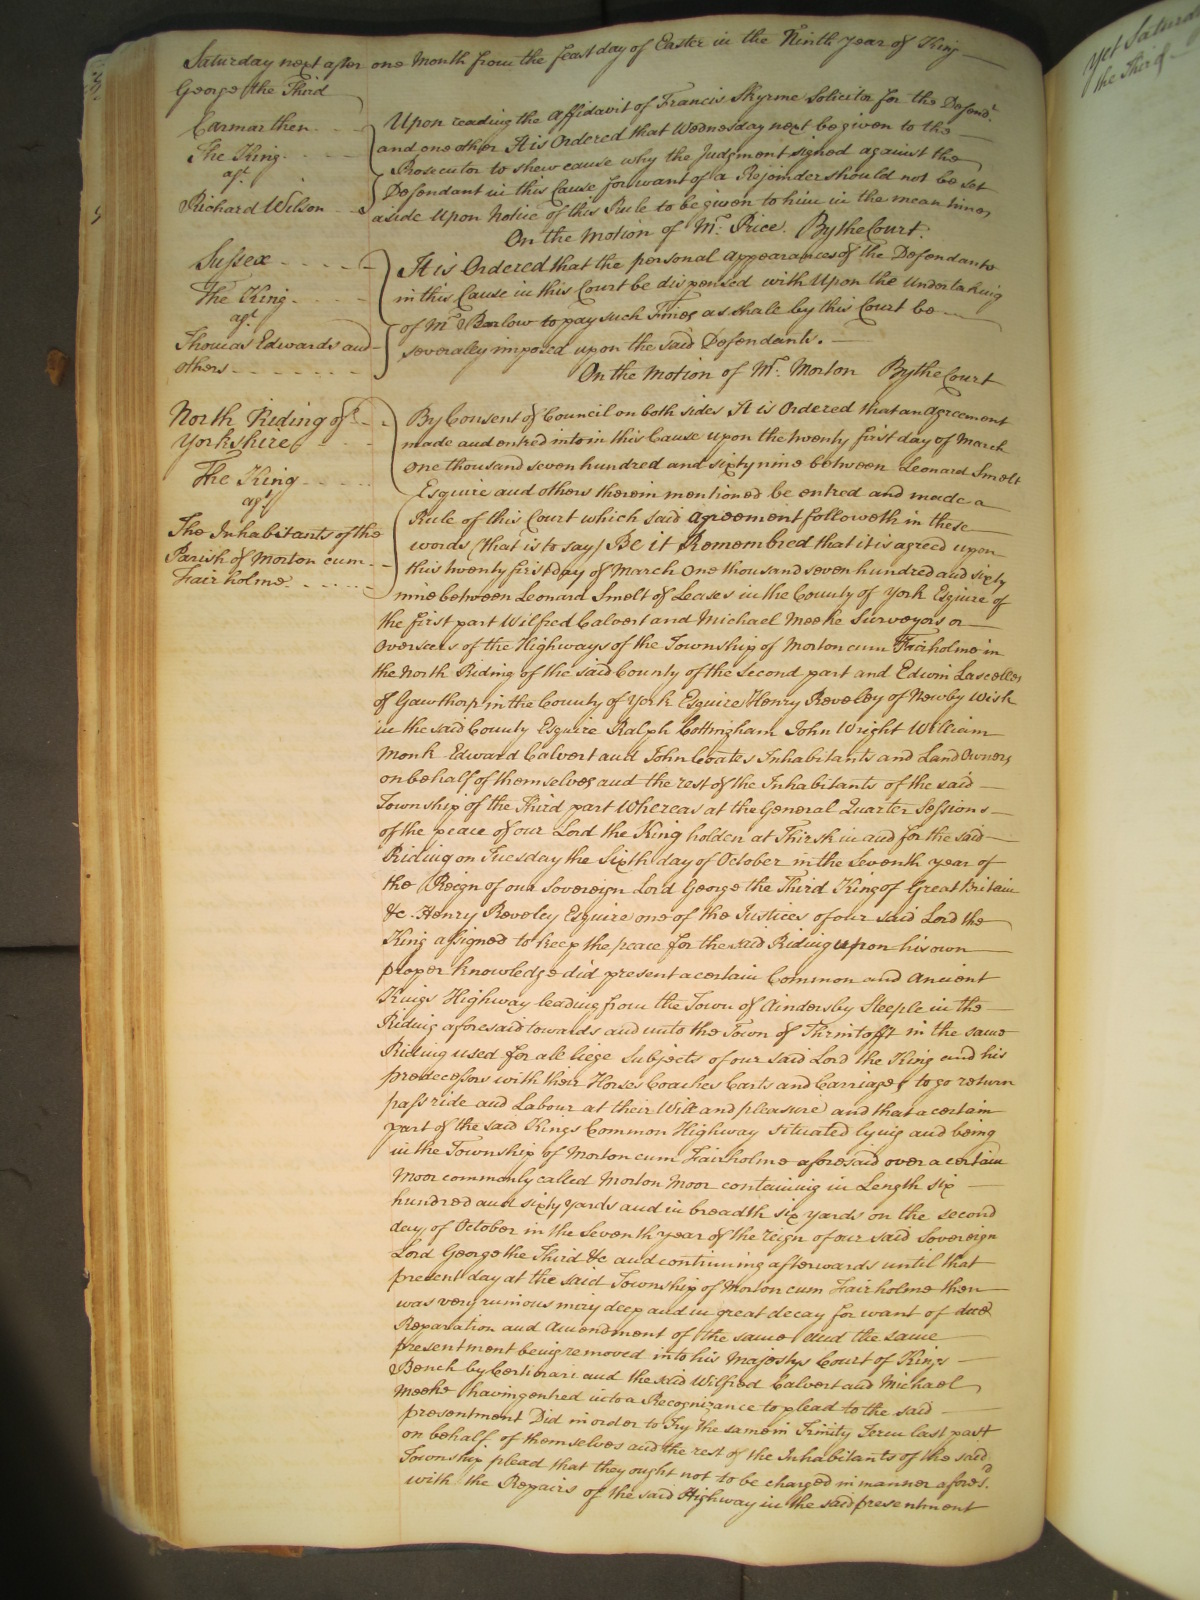 Saturday next after one Month from the feast day of Easter in the Ninth year of King
George the Third
Carmarthen
The King
agt
Richard Wilson
Upon reading the Affidavit of Francis Skyrme Solicitor for the Defendt
and one other It is Ordered that Wednesday next be given to the
Prosecutor to shew cause why the Judgment signed against the
Defendant in this Cause for want of a Rejoinder should not be set
aside Upon Notice of this Rule to be given to him in the mean time
On the Motion of Mr Price. By the Court.
Sussex
The King
agt
Thomas Edwards and
others
It is Ordered that the personal Appearances of the Defendants
in this Cause in this Court be dispensed with Upon the Undertaking
of Mr Barlow to pay such Fines as shall by this Court be
severally imposed upon the said Defendants.
On the Motion of Mr. Morton By the Court
North Riding of
Yorkshire
The King
agt
The Inhabitants of the
Parish of Morton cum
Fairholme
By Consent of Council on both sides It is Ordered that an Agreement
made and entred into in this Cause upon the twenty first day of March
One thousand seven hundred and sixty nine between Leonard Smelt
Esquire and others therein mentioned be entred and made a
Rule of this Court which said Agreement followeth in these
words (that is to say) Be it Remembred that it is agreed upon
this twenty first day of March One thousand seven hundred and sixty
nine between Leonard Smelt of Leases in the County of York Esquire of
the first part Wilfred Calvert and Michael Meeke Surveyors or
Overseers of the Highways of the Township of Morton cum Fairholme in
the North Riding of the said County of the Second part and Edwin Lascelles
of Gawthorp in the County of York Esquire Henry Reveley of Newby Wisk
in the said County Esquire Ralph Cottingham John Wright William
Monk Edward Calvert and John Coates Inhabitants and Land Owners
on behalf of themselves and the rest of the Inhabitants of the said
Township of the Third part Whereas at the General Quarter Sessions
of the peace of our Lord the King holden at Thirsk in and for the said
Riding on Tuesday the Sixth day of October in the Seventh year of
the Reign of our Sovereign Lord George the Third King of Great Britain
&c. Henry Reveley Esquire one of the Justices of our said Lord the
King assigned to keep the peace for the said Riding upon his own
proper knowledge did present a certain Common and Ancient
Kings Highway leading from the Town of Aindersby Steeple in the
Riding aforesaid towards and unto the Town of Thrintofft in the same
Riding used for all liege Subjects of our said Lord the King and his
predecessors with their Horses Coaches Carts and Carriages to go return
pass ride and Labour at their Will and pleasure and that a certain
part of the said Kings Common Highway situated lying and being
in the Township of Morton cum Fairholme aforesaid over a certain
Moor commonly called Morton Moor containing in Length six
hundred and sixty yards and in breadth six yards on the second
day of October in the Seventh year of the reign of our said Sovereign
Lord George the Third &c and continuing afterwards until that
present day at the said Township of Morton cum Fairholme then
was very ruinous miry deep and in great decay for want of due
Reparation and Amendment of the same And the same
presentment being removed into his Majestys Court of Kings
Bench by Certiorari and the said Wilfred Calvert and Michael
Meeke having entred into a Recognizance to plead to the said
presentment Did in order to Try the same in Trinity Term last past
on behalf of themselves and the rest of the Inhabitants of the said
Township plead that they ought not to be charged in manner afores'd
with the Repairs of the said Highway in the said presentment
yet Saturday
the Third